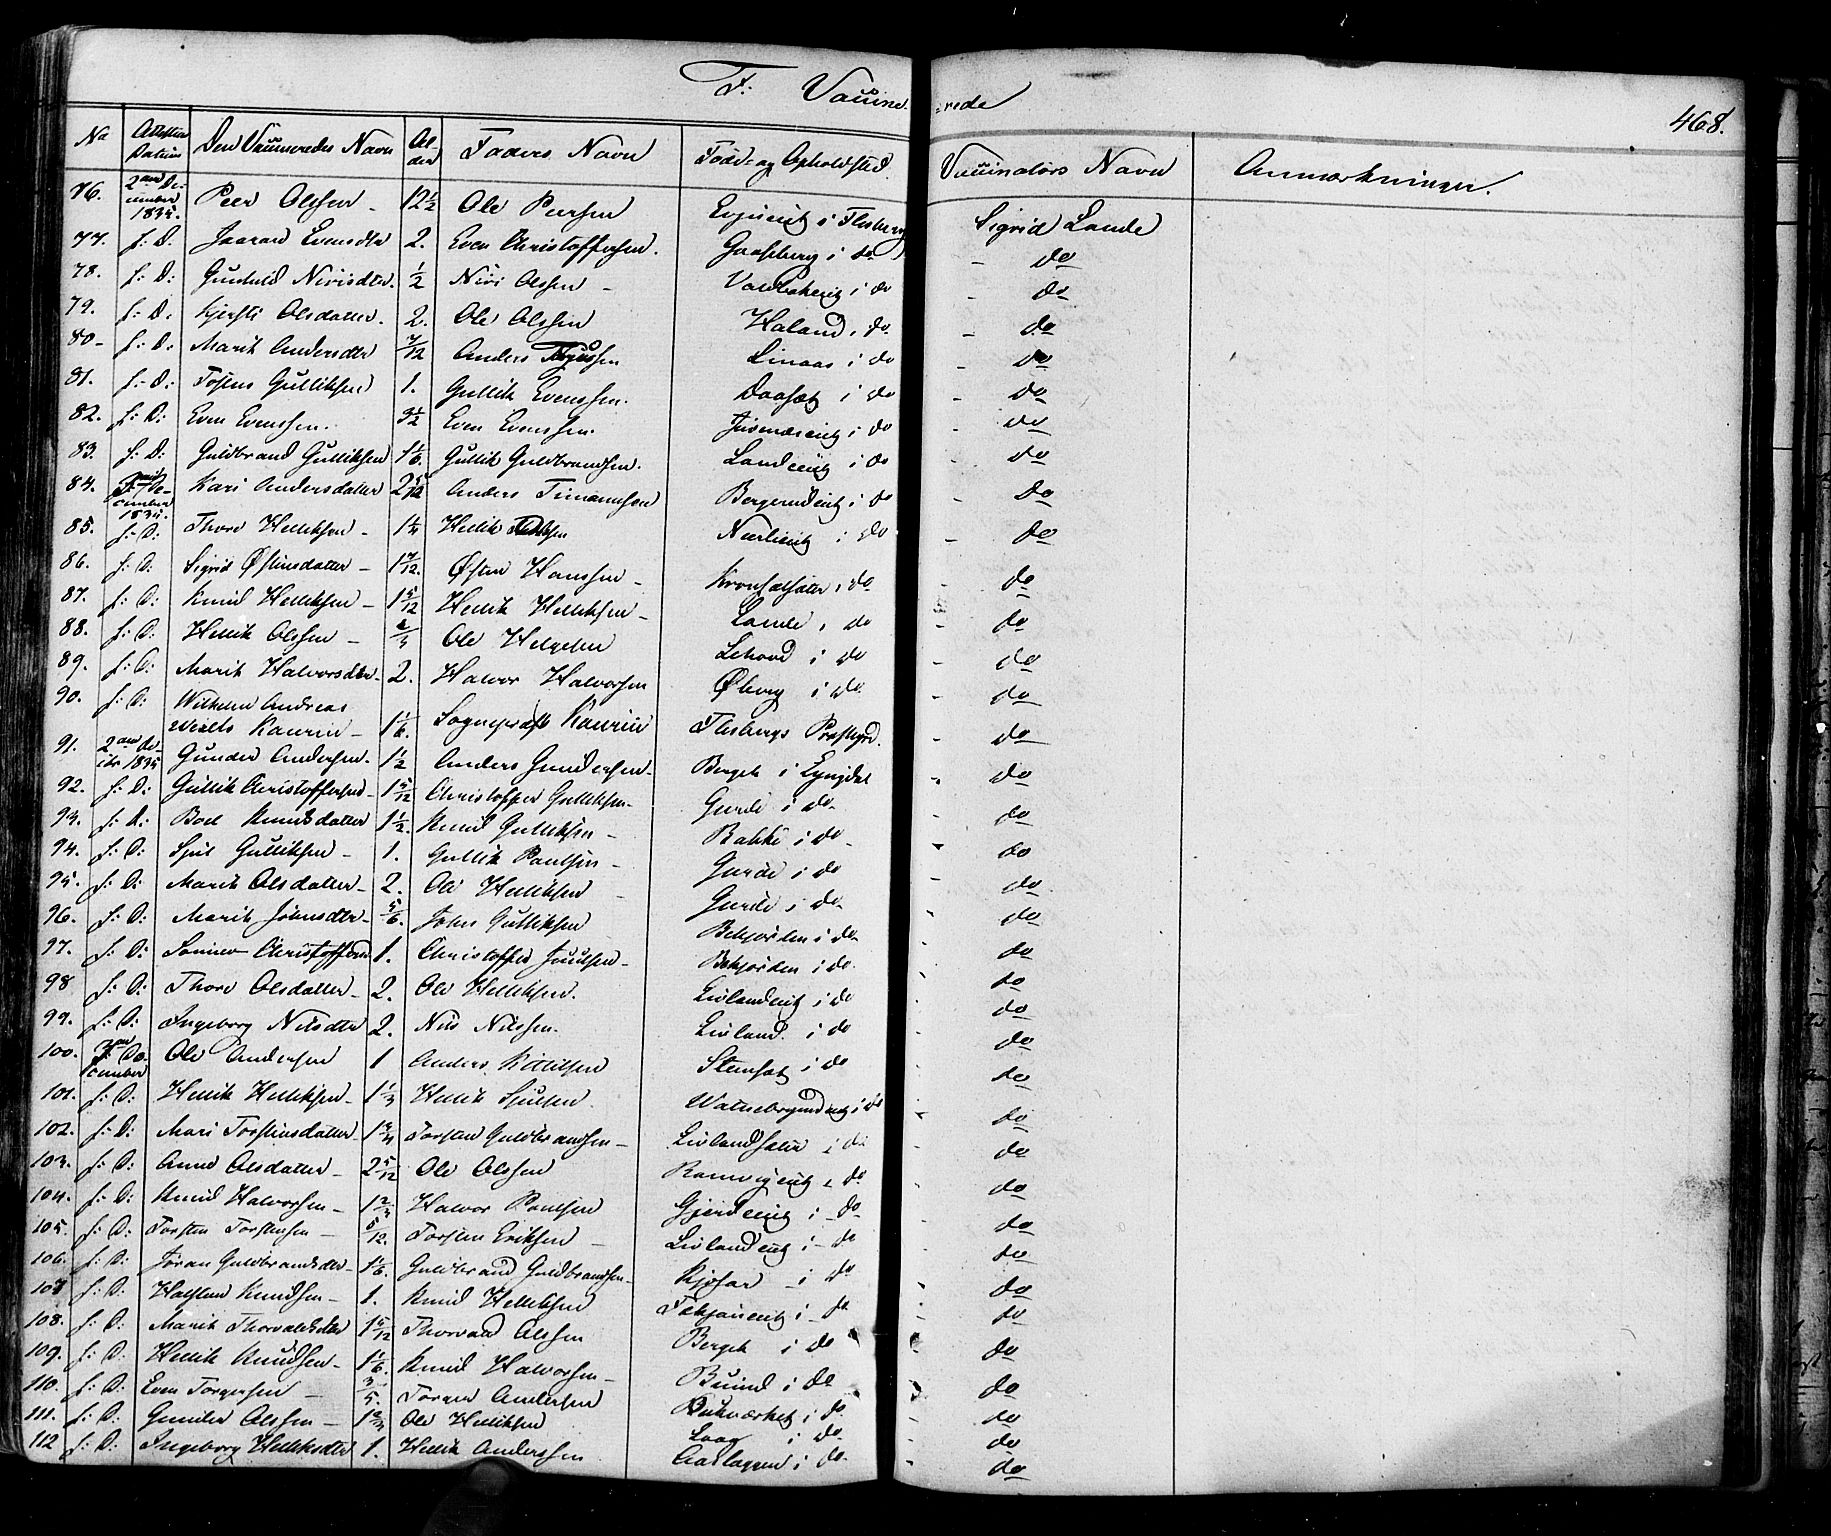 F: Vaccinerede
468.
No Attestens Datum Den Vaccineredes Navn Alder Faders Navn Føde- og Opholdsted. Vaccinators Navn Anmærkninger.
76. 2den December 1835. Peer Olssen 12½ Ole Peersen i Flesberg Sigrid Lande
77. f: D. Evensdtr 2. Even Christoffersen. Gaaseberg i do do
78. f: D: Gunhild Nirisdtr. ½ Niri Olssen i do do
79. f: D: Kjersti Olsdatter. 2. Ole Olssen Haland i do do
80 f: D: Marit Andersdtr 7/12 Anders Linaas i do do
81. f: D: Tosten Gulliksen 1. Gullik Evenssen. Daaset i do do
82. f: D: Even Evenssen. 3½ Even Evenssen. i do do
83. f: D: Guldbrand Gulliksen 1⅙ Gullik Guldbrandsen. Landeeiet i do do
84. December 1835. Kari Andersdatter 2 Anders Timannsen Bergerudeiet i do do
85. f: D: Thore Helliksen 1¼ Hellik i do do
86. f: D: Sigrid Østensdatter 1 7/12. Østen Hanssen i do do
87. f: D: Knud Helliksen 1 5/12 Hellik Helliksen Lande i do do
88. f: D: Hellik Olssen Ole Helgesen i do do
89. f: D: Marit Halvorsdtr 2. Halvor Halvorsen Øberg i do do
90. f: D: Wilhelm Andreas Wexels Kaurin 1⅙. Sognepræst Kaurin Flesbergs Præstegrd. do
91. 2den De-cbr 1835 Gunder Andersen 1½ Anders Gundersen Berget i Lyngdal do
92. f: D: Gullik Christoffersen 1 5/12 Christoffer Gulliksen Gurde i do do
93. f: D: Boel Knudsdatter 1½. Knud Gulliksen Bakke i do do
94. f: D: Sjul Gulliksen 1. Gullik Paulsen Gurde i do do
95. f: D: Marit Olsdatter 2. Ole Helliksen Gurde i do do
96. f: D: Marit Johnsdtr 5/6. John Gulliksen Bekjorden i do do
97. f: D: Christoffersd 1. Christoffer Bekjorden i do. do
98 f: D: Thore Olsdatter 2. Ole Helliksen. Livlandeiet i do do
99. f: D: Ingeborg Nilsdtr 2. Nils Nilssen. Livland i do do
100. December Ole Andersen 1 Anders Kittilsen Stensæt i do do
101. f: D: Hellik Helliksen 1⅓ Hellik Sjulsen. i do do
102. f: D: Mari Torstensdatter 1 Torsten Guldbrandsen Livlandsæter i do do
103. f: D: Anne Olsdatter 2 5/12 Ole Olssen Ramvigeiet i do do
104. f: D: Knud Halvorsen 1⅔ Halvor Paulsen Gjerdeeiet i do do
105. f: D: Torsten Torstensen 5/12. Torsten Eriksen Livlandeiet i do do
106. f: D: Jøran Guldbrandsdtr 1⅙. Guldbrand Guldbrandsen i do do
107 f: D: Halsten Knudsen 1. Knud Helliksen i do do
108. f: D: Marit Thorvaldsdtr 1 5/12 Thorvald Olssen Berget i do do
109. f: D: Hellik Knudsen 1⅙. Knud Halvorsen i do do
110. f: D: Even Torgersen Torger Andersen Bukværket i do do
111. f: D: Gunder Olssen 1 Ole Helliksen Laag i do do
112 f: D: Ingeborg Helliksdtr 1. Hellik Anderssen i do do